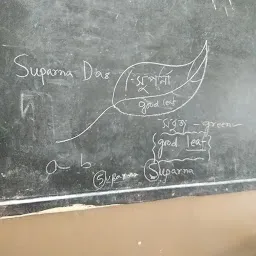 Suparna Das
সুপর্ণা
good leaf
সবুজ - green
{good leaf}
a b
Suparna Suparna